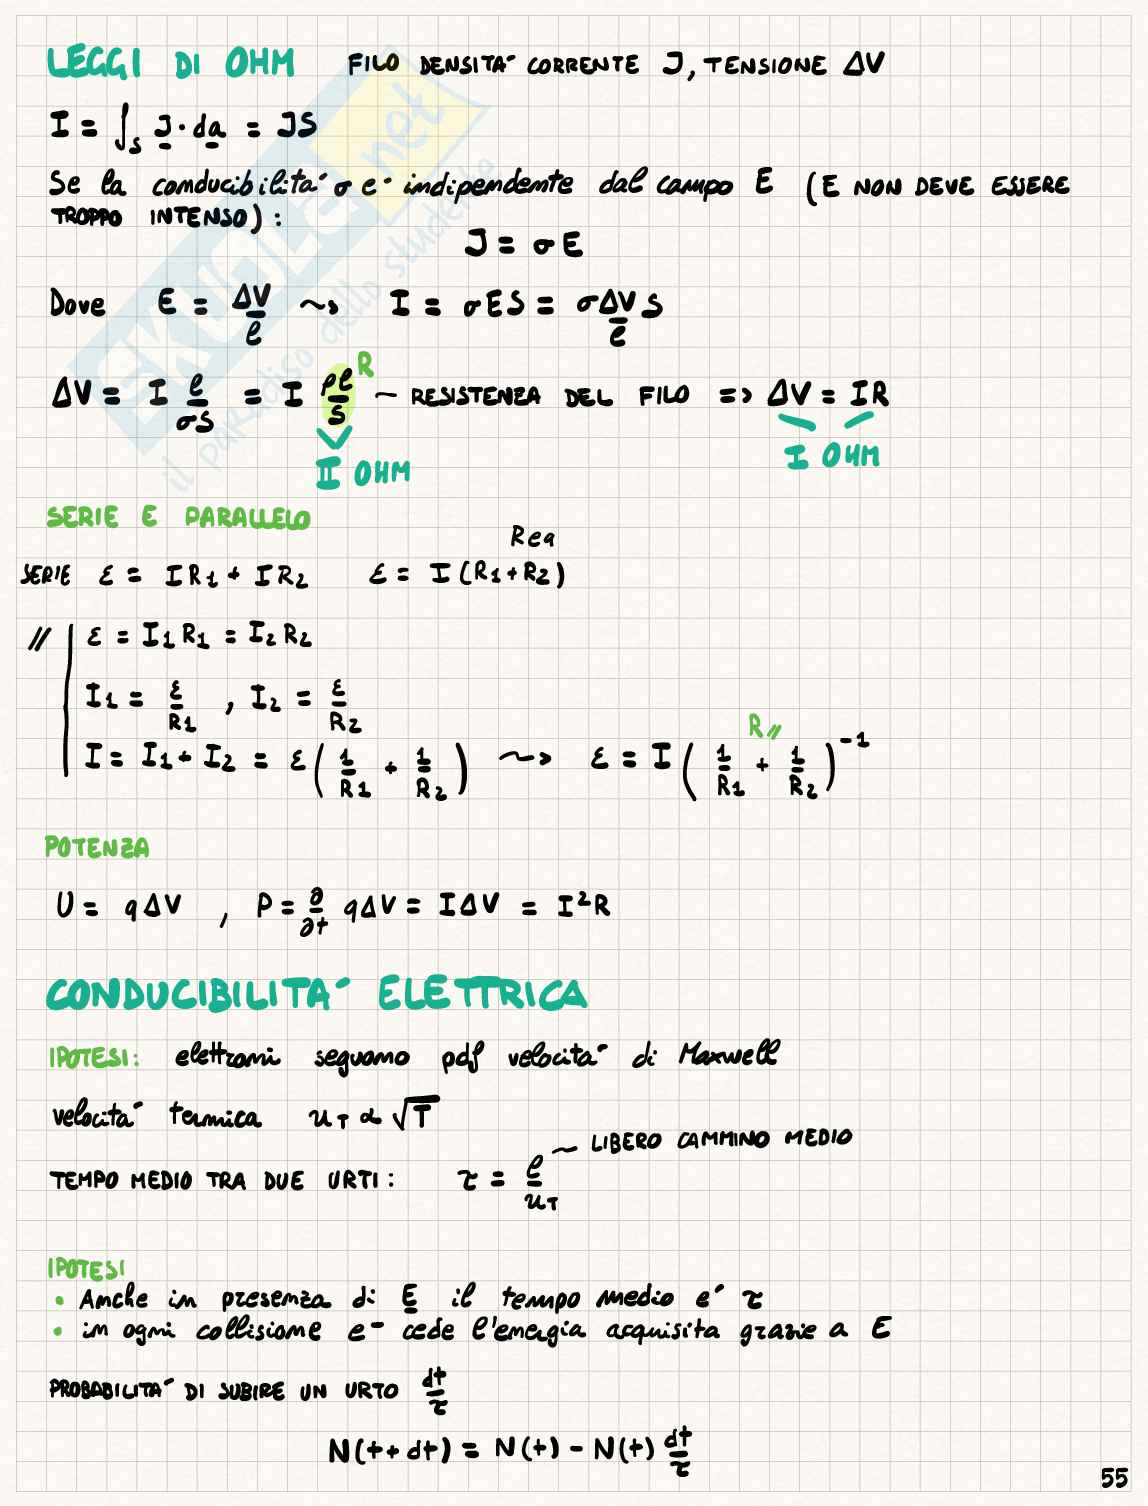 LEGGI DI OHM FILO DENSITA' CORRENTE J, TENSIONE ΔV
I = ∫_S J · da = JS
Se la conducibilita' σ e' indipendente dal campo E (E NON DEVE ESSERE
TROPPO INTENSO):
J = σE
Dove E = ΔV/ℓ ~> I = σES = σ ΔV/ℓ S
ΔV = I ℓ/σS = I ρℓ/S R ~ RESISTENZA DEL FILO => ΔV = IR
II OHM I OHM
SERIE E PARALLELO
Req
SERIE ε = IR1 + IR2 ε = I(R1+R2)
// ε = I1R1 = I2R2
I1 = ε/R1 , I2 = ε/R2
R//
I = I1 + I2 = ε(1/R1 + 1/R2) ~> ε = I(1/R1 + 1/R2)^-1
POTENZA
U = qΔV , P = ∂/∂t qΔV = IΔV = I²R
CONDUCIBILITA' ELETTRICA
IPOTESI: elettroni seguono pdf velocita' di Maxwell
velocita' termica u_T ∝ √T
~ LIBERO CAMMINO MEDIO
TEMPO MEDIO TRA DUE URTI: τ = ℓ/u_T
IPOTESI
• Anche in presenza di E il tempo medio e' τ
• in ogni collisione e⁻ cede l'energia acquisita grazie a E
PROBABILITA' DI SUBIRE UN URTO dt/τ
N(t+dt) = N(t) - N(t) dt/τ
55
SKUOLA.net
il paradiso dello studente